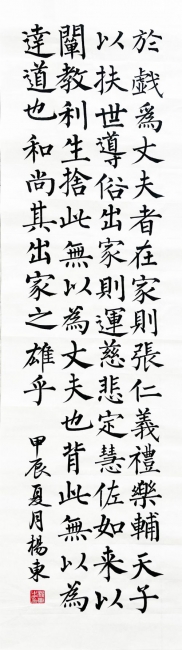 於戲爲丈夫者在家則張仁義禮樂輔天子
以扶世導俗出家則運慈悲定慧佐如来以
闡教利生捨此無以為丈夫也背此無以為
達道也和尚其出家之雄乎
甲辰夏月楊東